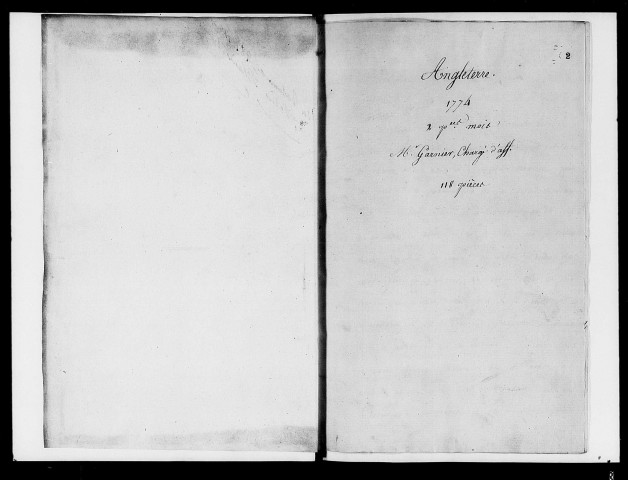 2
Angleterre.
1774
2 p.ers mois
Mr. Garnier, Chargé d'aff.
118 pièces